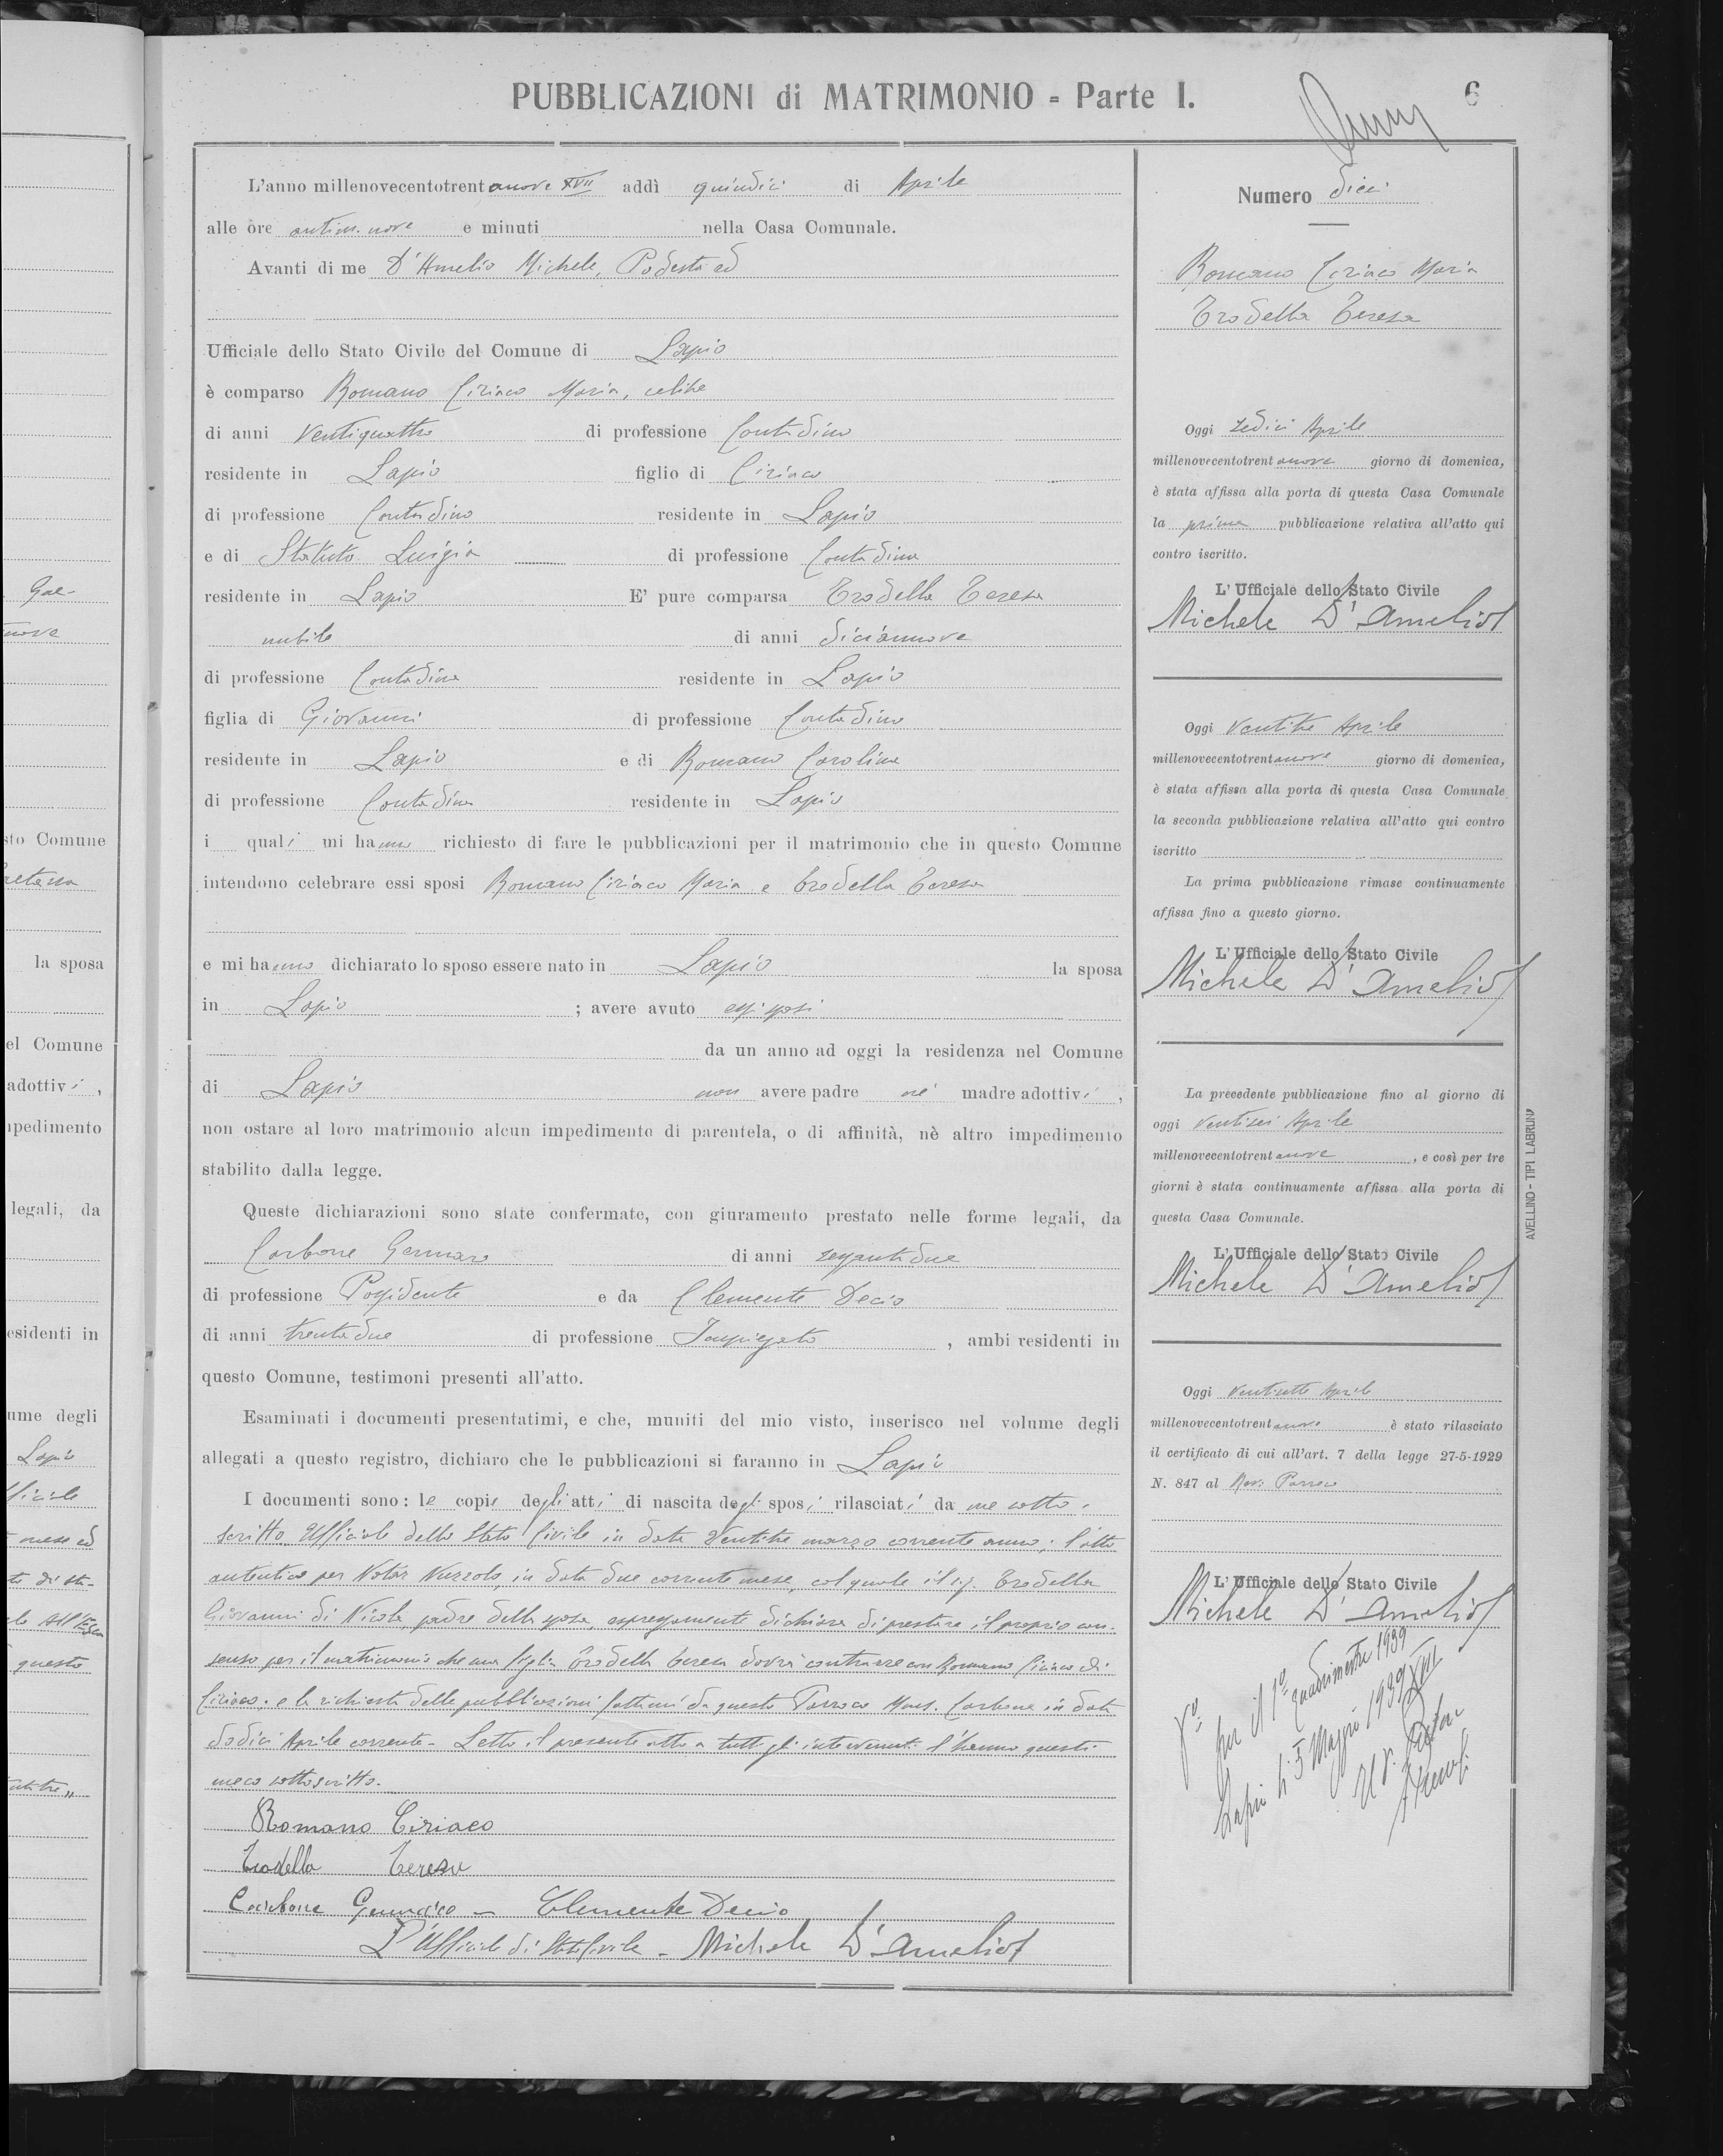 PUBBLICAZIONI di MATRIMONIO - Parte I.
6
L'anno millenovecentotrentanove XVII addì quindici di Aprile
alle ore antim. nove e minuti nella Casa Comunale.
Avanti di me D'Amelio Michele, Podestà ed
Ufficiale dello Stato Civile del Comune di Lapio
è comparso Romano Ciriaco Maria, celibe
di anni Ventiquattro di professione Contadino
residente in Lapio figlio di Ciriaco
di professione Contadino residente in Lapio
e di Statuto Luigia di professione Contadina
residente in Lapio E' pure comparsa Trodella Teresa
nubile di anni diciannove
di professione Contadina residente in Lapio
figlia di Giovanni di professione Contadino
residente in Lapio e di Romano Carolina
di professione Contadina residente in Lapio
i quali mi hanno richiesto di fare le pubblicazioni per il matrimonio che in questo Comune
intendono celebrare essi sposi Romano Ciriaco Maria e Trodella Teresa
e mi hanno dichiarato lo sposo essere nato in Lapio la sposa
in Lapio ; avere avuto essi sposi
da un anno ad oggi la residenza nel Comune
di Lapio non avere padre nè madre adottivi,
non ostare al loro matrimonio alcun impedimento di parentela, o di affinità, nè altro impedimento
stabilito dalla legge.
Queste dichiarazioni sono state confermate, con giuramento prestato nelle forme legali, da
Carbone Gennaro di anni sessantadue
di professione Possidente e da Clemente Decio
di anni trentadue di professione Impiegato , ambi residenti in
questo Comune, testimoni presenti all'atto.
Esaminati i documenti presentatimi, e che, muniti del mio visto, inserisco nel volume degli
allegati a questo registro, dichiaro che le pubblicazioni si faranno in Lapio
I documenti sono: le copie degli atti di nascita degli sposi rilasciati da me sotto-
scritto Ufficiale dello Stato Civile in data Ventitre marzo corrente anno; l'atto
autentico per Notar Nuzzolo, in data due corrente mese, col quale il sig. Trodella
Giovanni di Nicola, padre della sposa, espressamente dichiara di prestare il proprio con-
senso per il matrimonio che sua figlia Trodella Teresa dovrà contrarre con Romano Ciriaco di
Ciriaco; e la richiesta delle pubblicazioni fattami da questo Parroco Mons. Carbone in data
dodici Aprile corrente - Letto il presente atto a tutti gli intervenuti l'hanno questi
meco sottoscritto.
Romano Ciriaco
Trodella Teresa
Carbone Gennaro - Clemente Decio
L'Ufficiale di Stato Civile - Michele D'Amelio
Numero dieci
Romano Ciriaco Maria
Trodella Teresa
Oggi sedici Aprile
millenovecentotrentanove giorno di domenica,
è stata affissa alla porta di questa Casa Comunale
la prima pubblicazione relativa all'atto qui
contro iscritto.
L'Ufficiale dello Stato Civile
Michele D'Amelio
Oggi Ventitre Aprile
millenovecentotrentanove giorno di domenica,
è stata affissa alla porta di questa Casa Comunale
la seconda pubblicazione relativa all'atto qui contro
iscritto
La prima pubblicazione rimase continuamente
affissa fino a questo giorno.
L'Ufficiale dello Stato Civile
Michele D'Amelio
La precedente pubblicazione fino al giorno di
oggi Ventisei Aprile
millenovecentotrentanove , e così per tre
giorni è stata continuamente affissa alla porta di
questa Casa Comunale.
L'Ufficiale dello Stato Civile
Michele D'Amelio
Oggi Ventisette Aprile
millenovecentotrentanove è stato rilasciato
il certificato di cui all'art. 7 della legge 27-5-1929
N. 847 al Rev. Parroco
L'Ufficiale dello Stato Civile
Michele D'Amelio
Vo per il 1o quadrimestre 1939
Lapio li 5 Maggio 1939 XVII
Il V. Pretore
AVELLINO - TIPI LABRUNA
Gae-
nove
sto Comune
aetana
la sposa
el Comune
adottivi,
npedimento
legali, da
esidenti in
ume degli
Lapio
fficiale
mese ed
questo